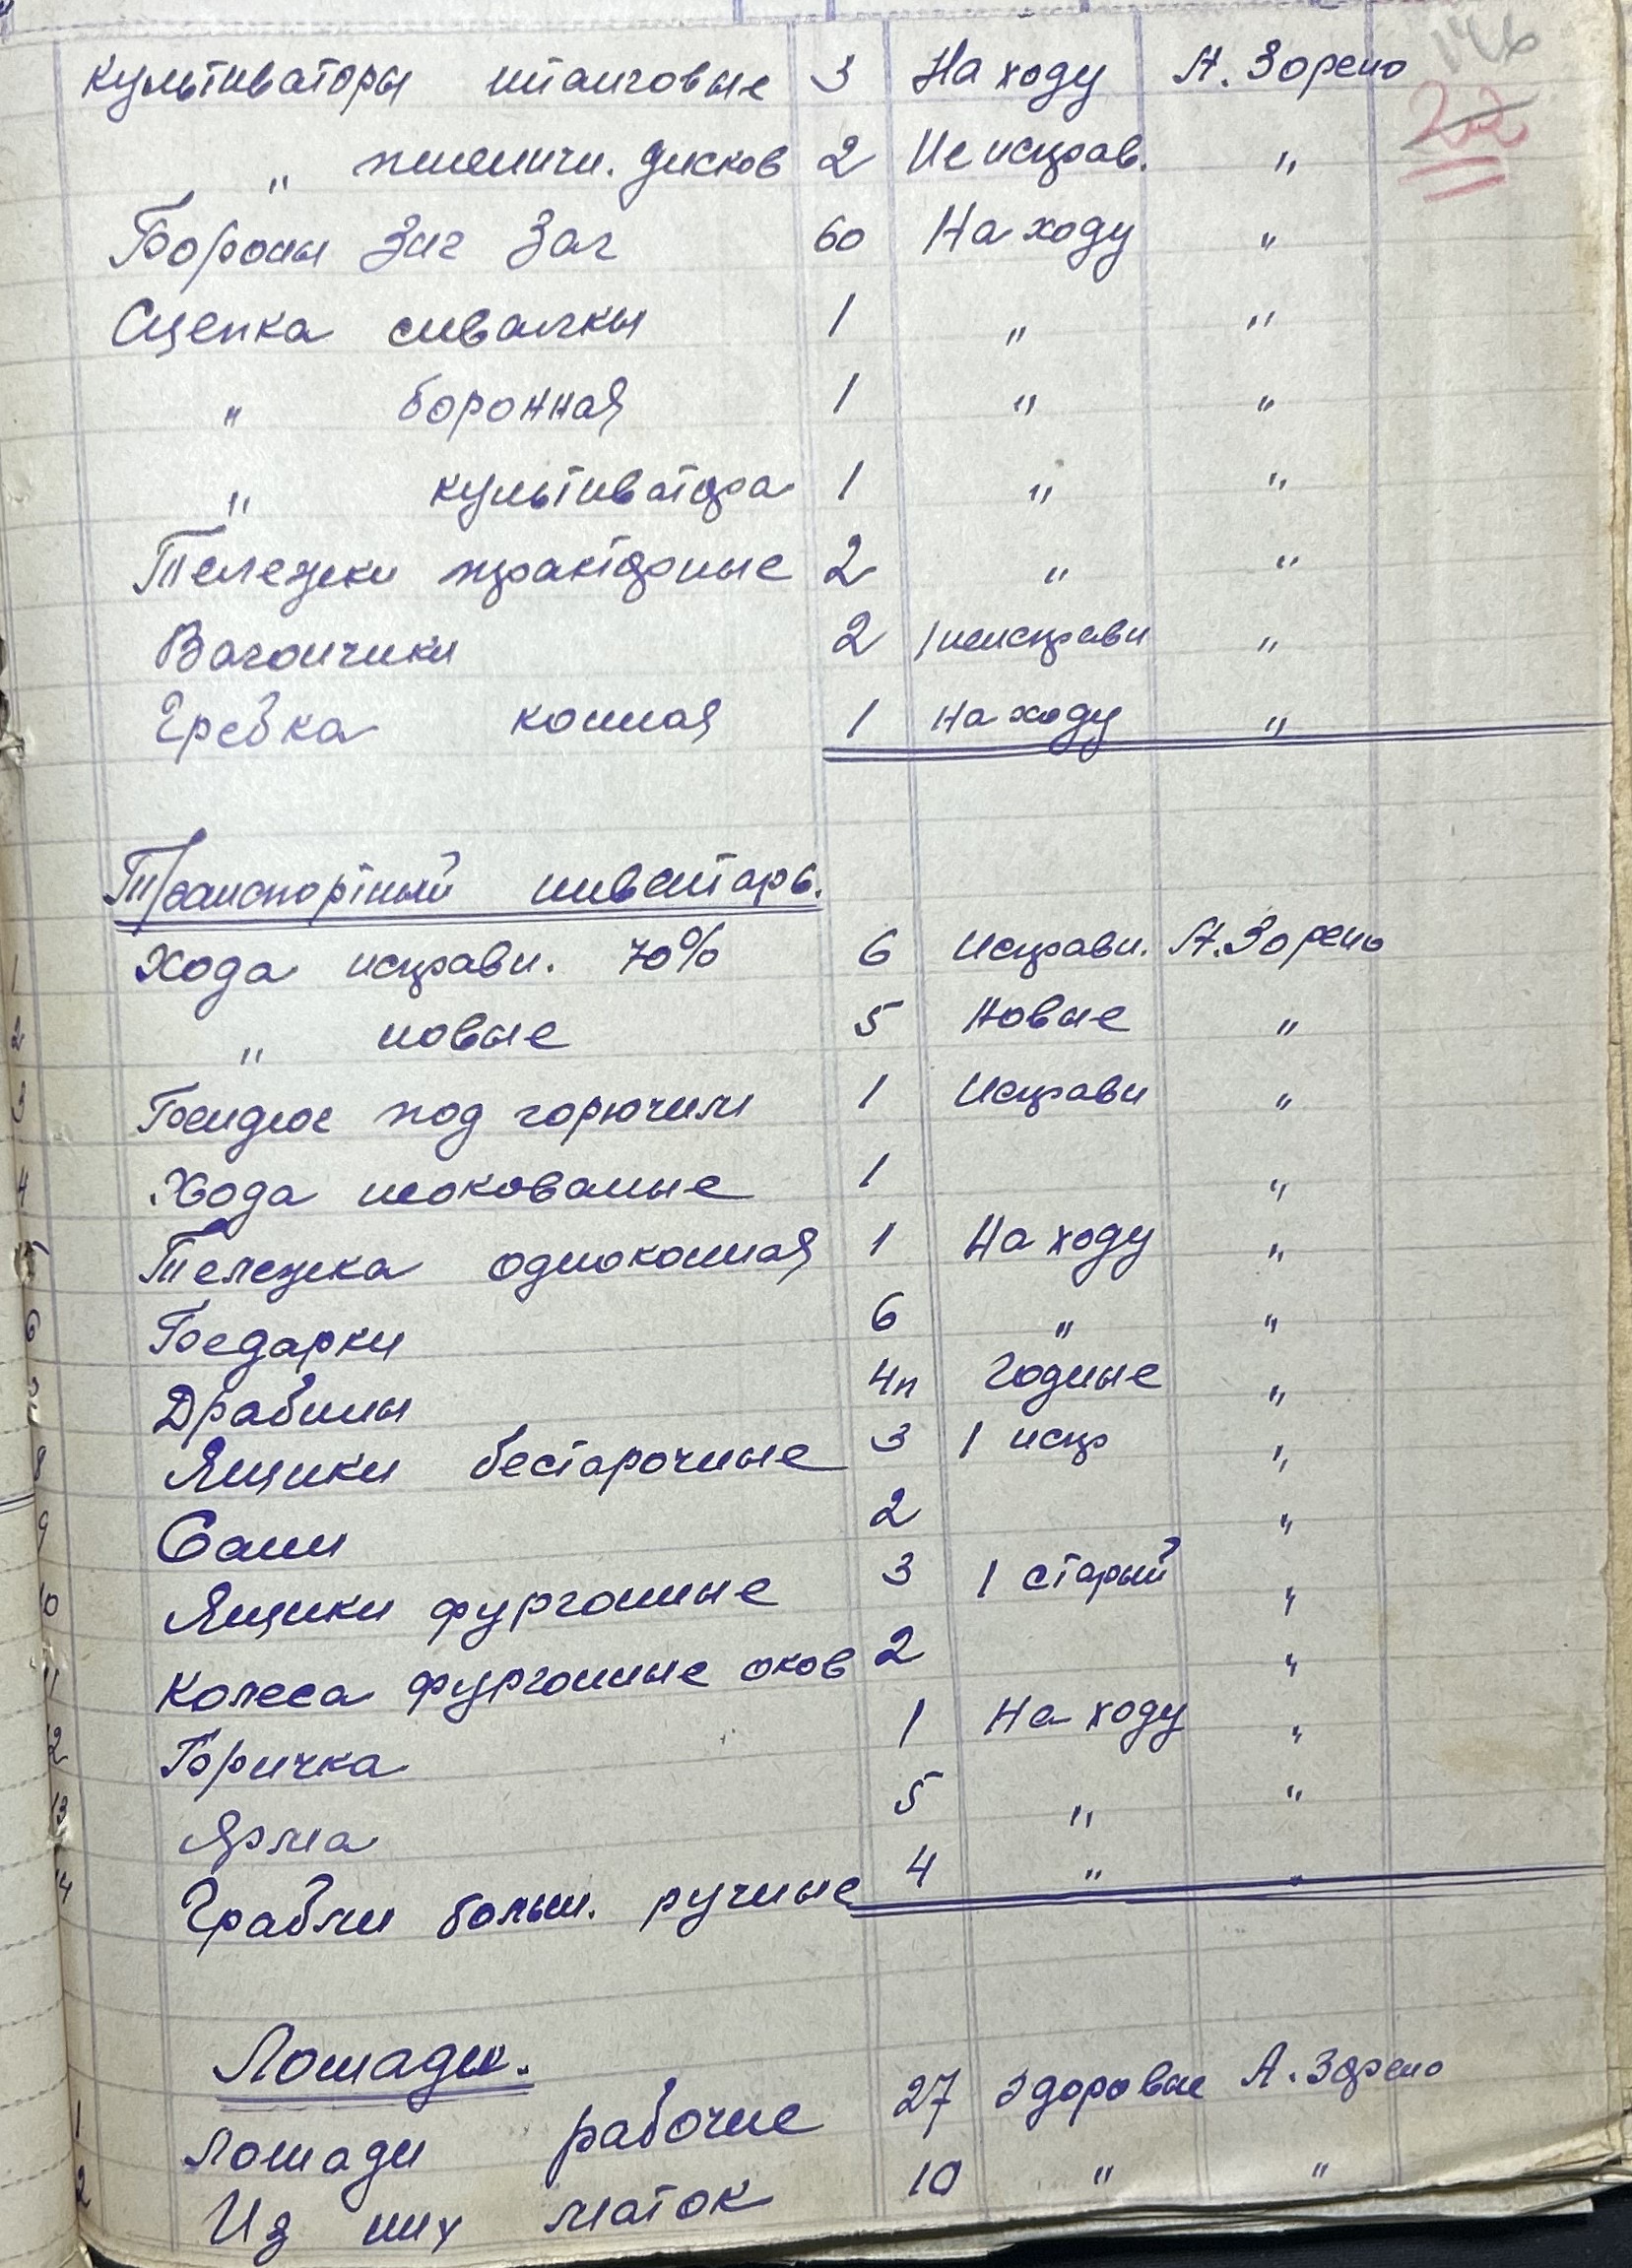 146
22
Культиваторы штанговые 3 На ходу А. Зорено
" пшеничн. дисков 2 Не исправ. "
Бороны Зиг Заг 60 На ходу "
Сцепка сивалки 1 " "
" боронная 1 " "
" культиватора 1 " "
Тележки тракторные 2 " "
Вагончики 2 1 неисправн "
Гребка конная 1 На ходу "
Транспортный инвентарь.
1 Хода исправн. 70% 6 Исправн. А. Зорено
2 " новые 5 Новые "
3 Бендюг под горючим 1 Исправн "
4 Хода неокованые 1 "
5 Тележка одноконная 1 На ходу "
6 Бедарки 6 " "
7 Драбины 4п Годные "
8 Ящики бестарочные 3 1 испр "
9 Сани 2 "
10 Ящики фургонные 3 1 старый "
11 Колеса фургонные оков 2 "
12 Бричка 1 На ходу "
13 Ярма 5 " "
14 Грабли больш. ручные 4 " "
Лошади.
1 Лошади рабочие 27 Здоровые А. Зорено
2 Из них маток 10 " "